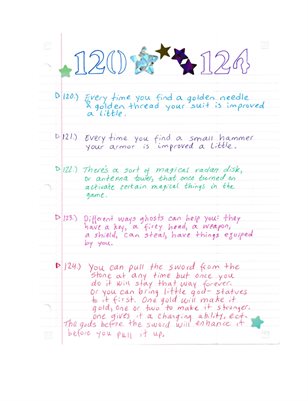 120 124
120.) Every time you find a golden needle
& golden thread your suit is improved
a little.
121.) Every time you find a small hammer
your armor is improved a little.
122.) There's a sort of magical radar disk,
or antenna that once turned on
activate certain magical things in the
game.
123.) Different ways ghosts can help you: they
have a key, a firey head, a weapon,
a shield, can steal, have things equiped
by you.
124.) You can pull the sword from the
stone at any time but once you
do it will stay that way forever.
Or you can bring little god-statues
to it first. One gold will make it
gold, one or two to make it stronger,
one gives it a changing ability, ect-
The gods before the sword will enhance it
before you pull it up.